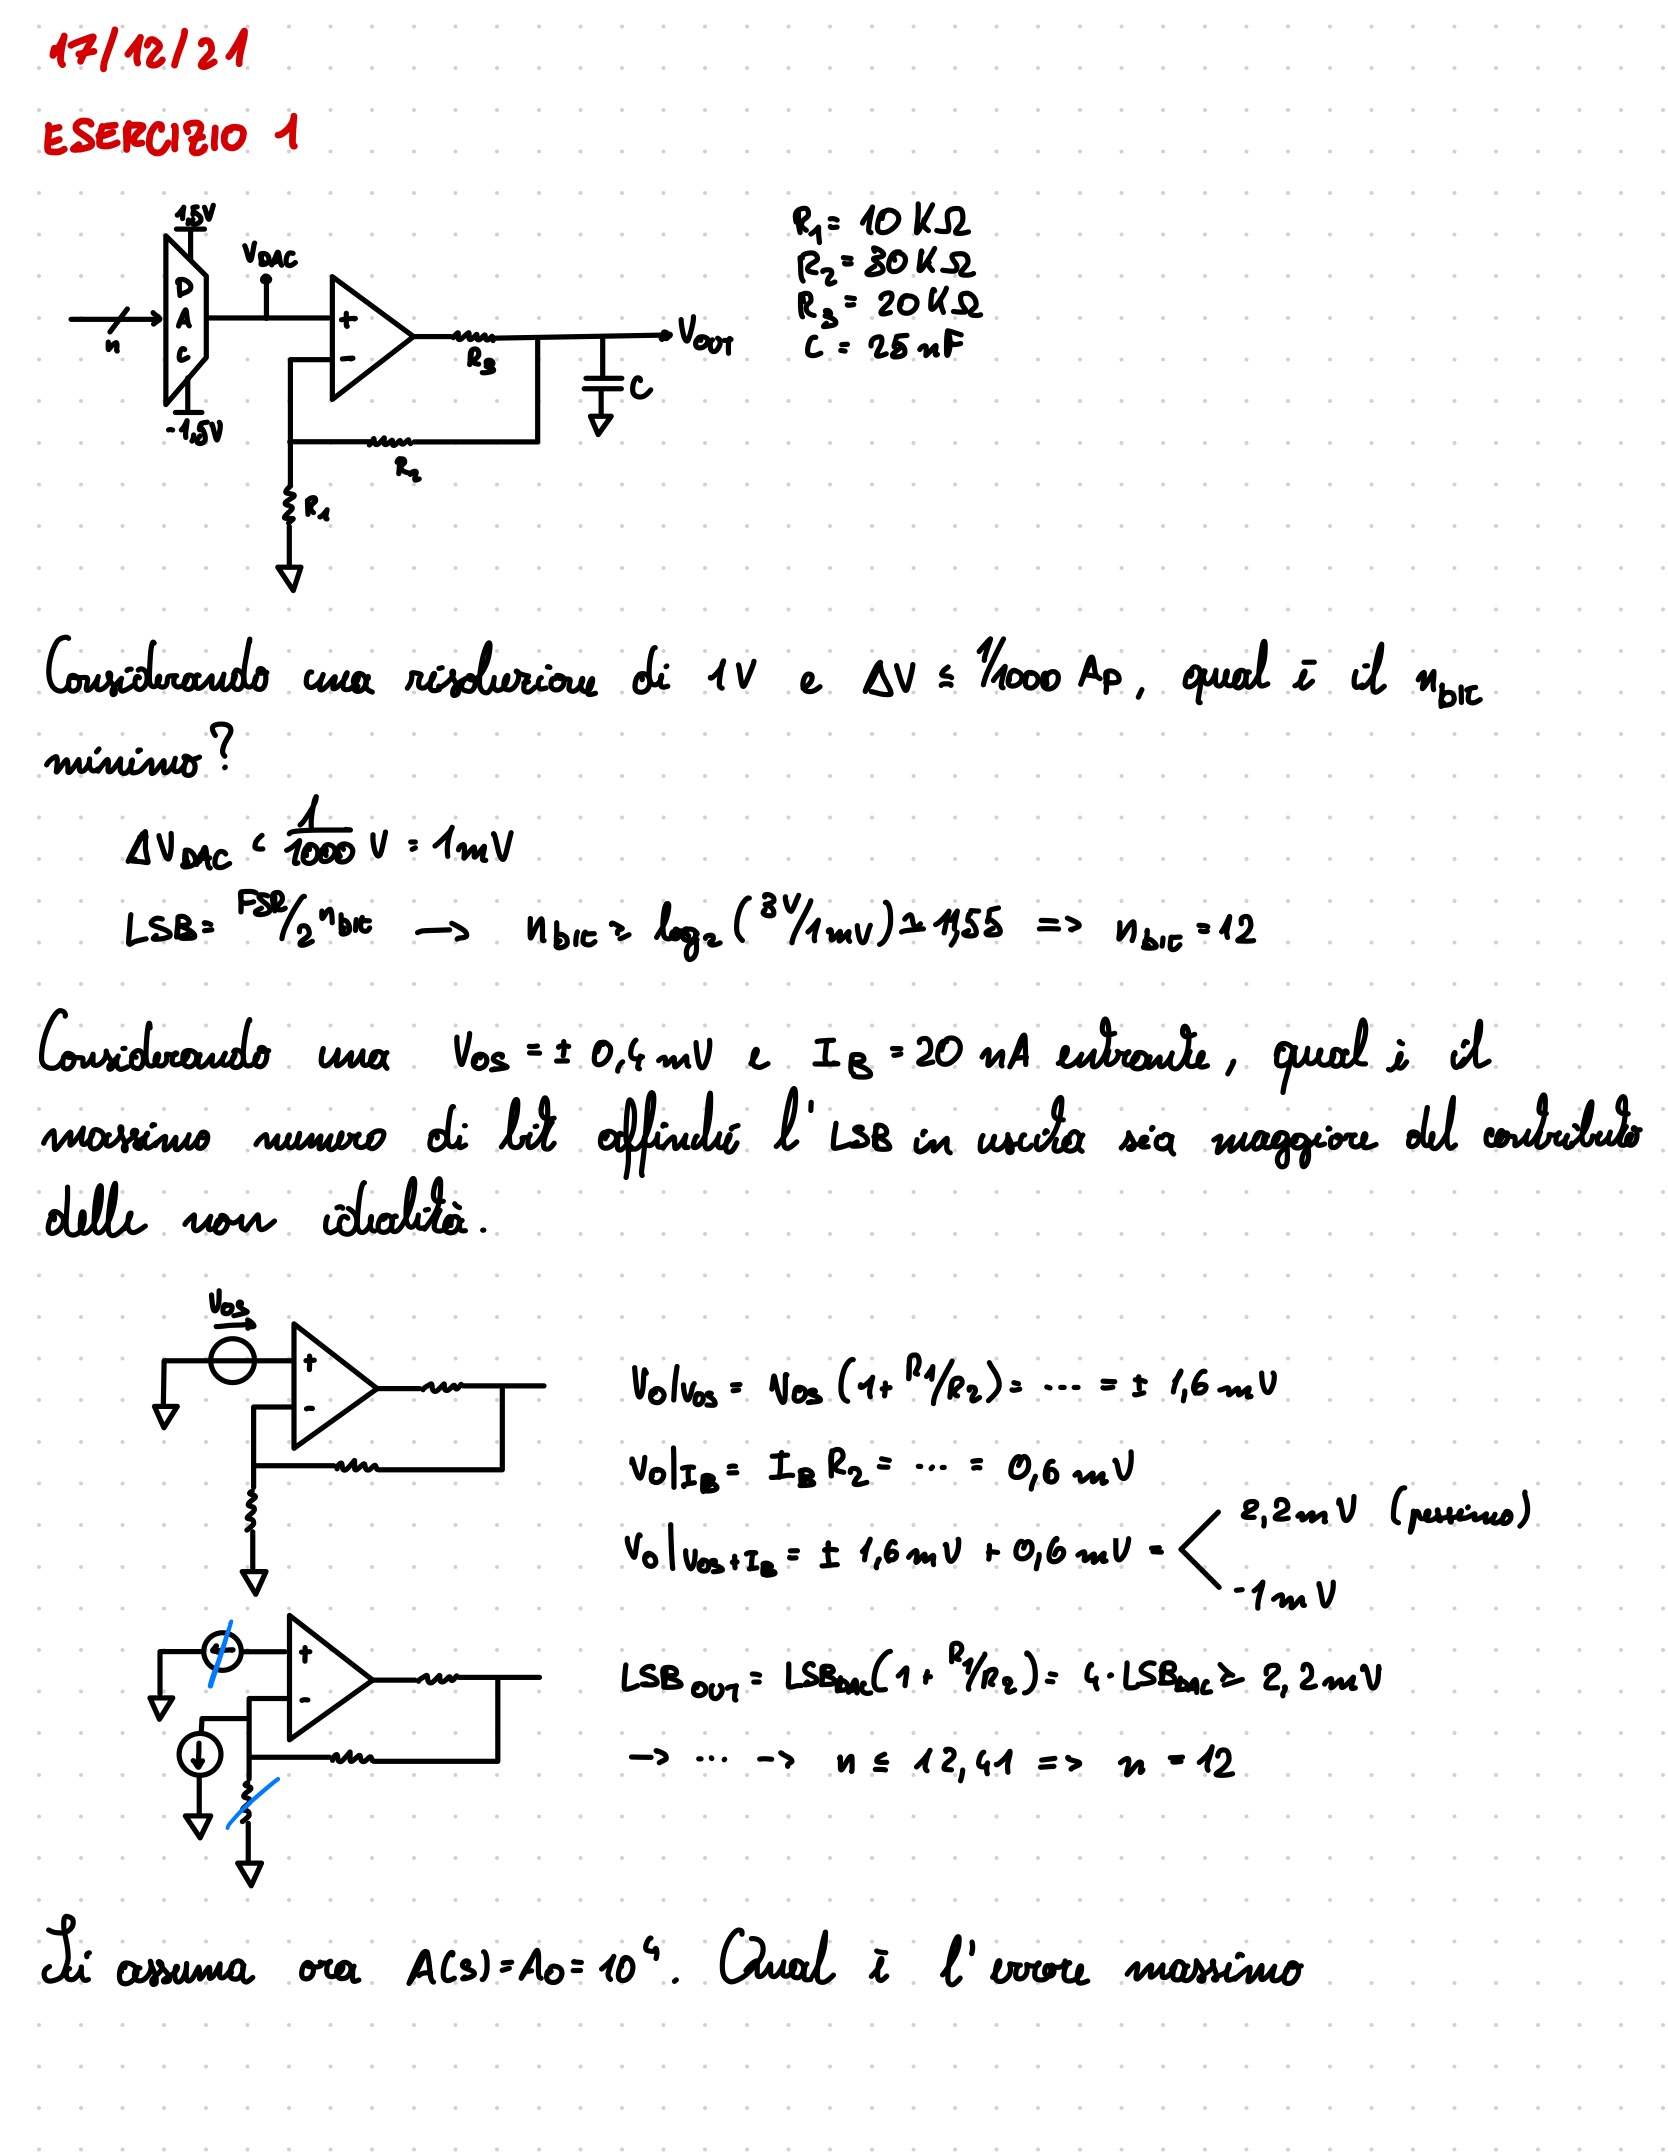 17/12/21
ESERCIZIO 1
1,5V
VDAC
n
DAC
+
-
-1,5V
R3
VOUT
C
R2
R1
R1 = 10 KΩ
R2 = 30 KΩ
R3 = 20 KΩ
C = 25 nF
Considerando una risoluzione di 1V e ΔV ≤ 1/1000 Ap, qual è il nbit
minimo?
ΔVDAC < 1/1000 V = 1mV
LSB = FSR/2^nbit → nbit ≥ log2 (3V/1mV) ≃ 11,55 => nbit = 12
Considerando una Vos = ± 0,4 mV e IB = 20 nA entrante, qual è il
massimo numero di bit affinché l'LSB in uscita sia maggiore del contributo
delle non idealità.
Vos
+
-
Vo|Vos = Vos (1+ R1/R2) = ... = ± 1,6 mV
Vo|IB = IB R2 = ... = 0,6 mV
Vo|Vos+IB = ± 1,6 mV + 0,6 mV =
2,2 mV (pessimo)
-1 mV
+
-
LSBOUT = LSBDAC (1 + R1/R2) = 4 · LSBDAC ≥ 2,2 mV
→ ... → n ≤ 12,41 => n = 12
Si assuma ora A(s) = A0 = 10^4. Qual è l'errore massimo